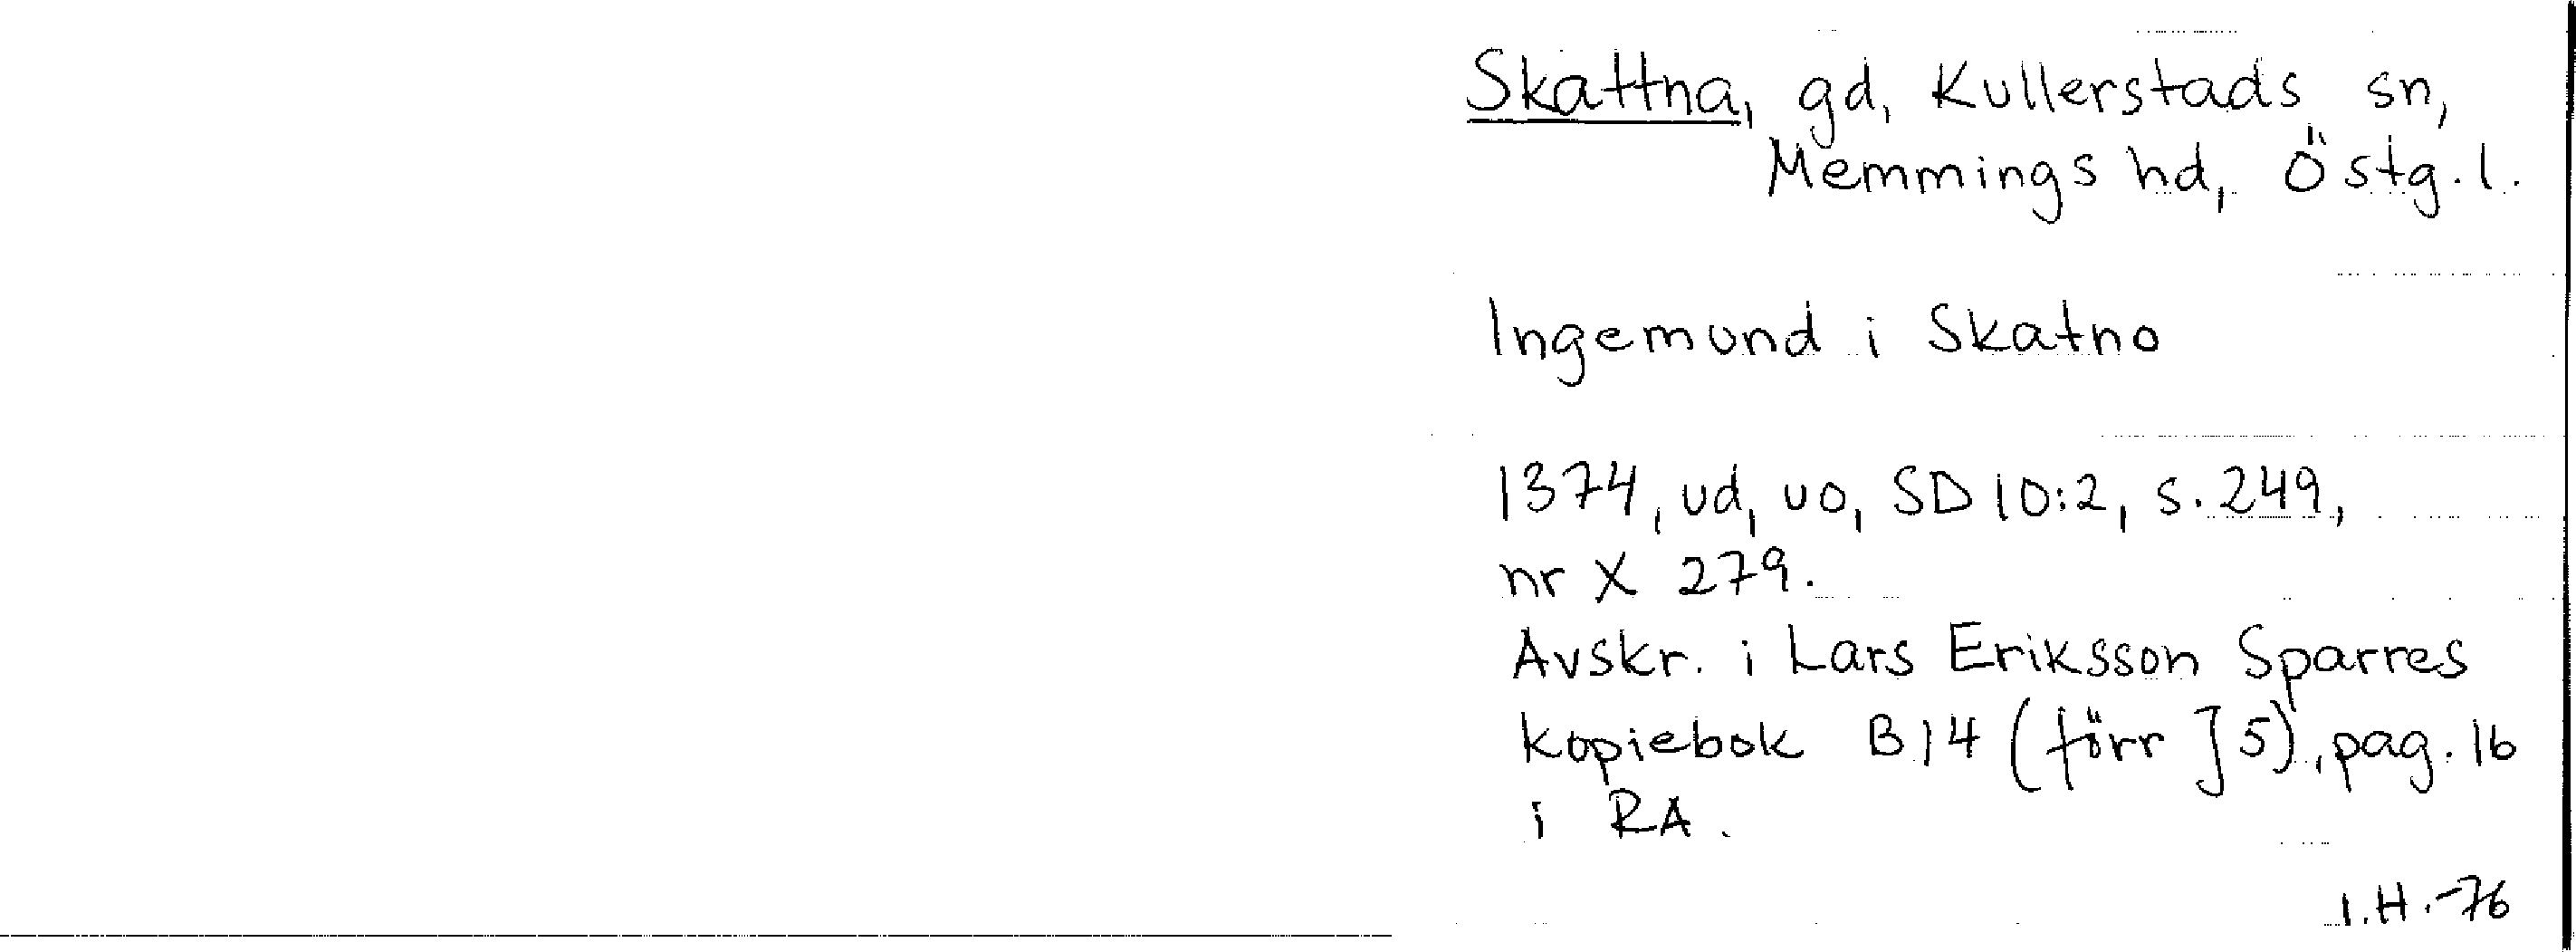 Skattna, gd, Kullerstads sn,
Memmings hd, Östg.l.
Ingemund i Skatno
1374, ud, uo, SD 10:2, s. 249,
nr X 279.
Avskr. i Lars Eriksson Sparres
kopiebok B14 (förr J5), pag. 16
i RA.
I.H.-76